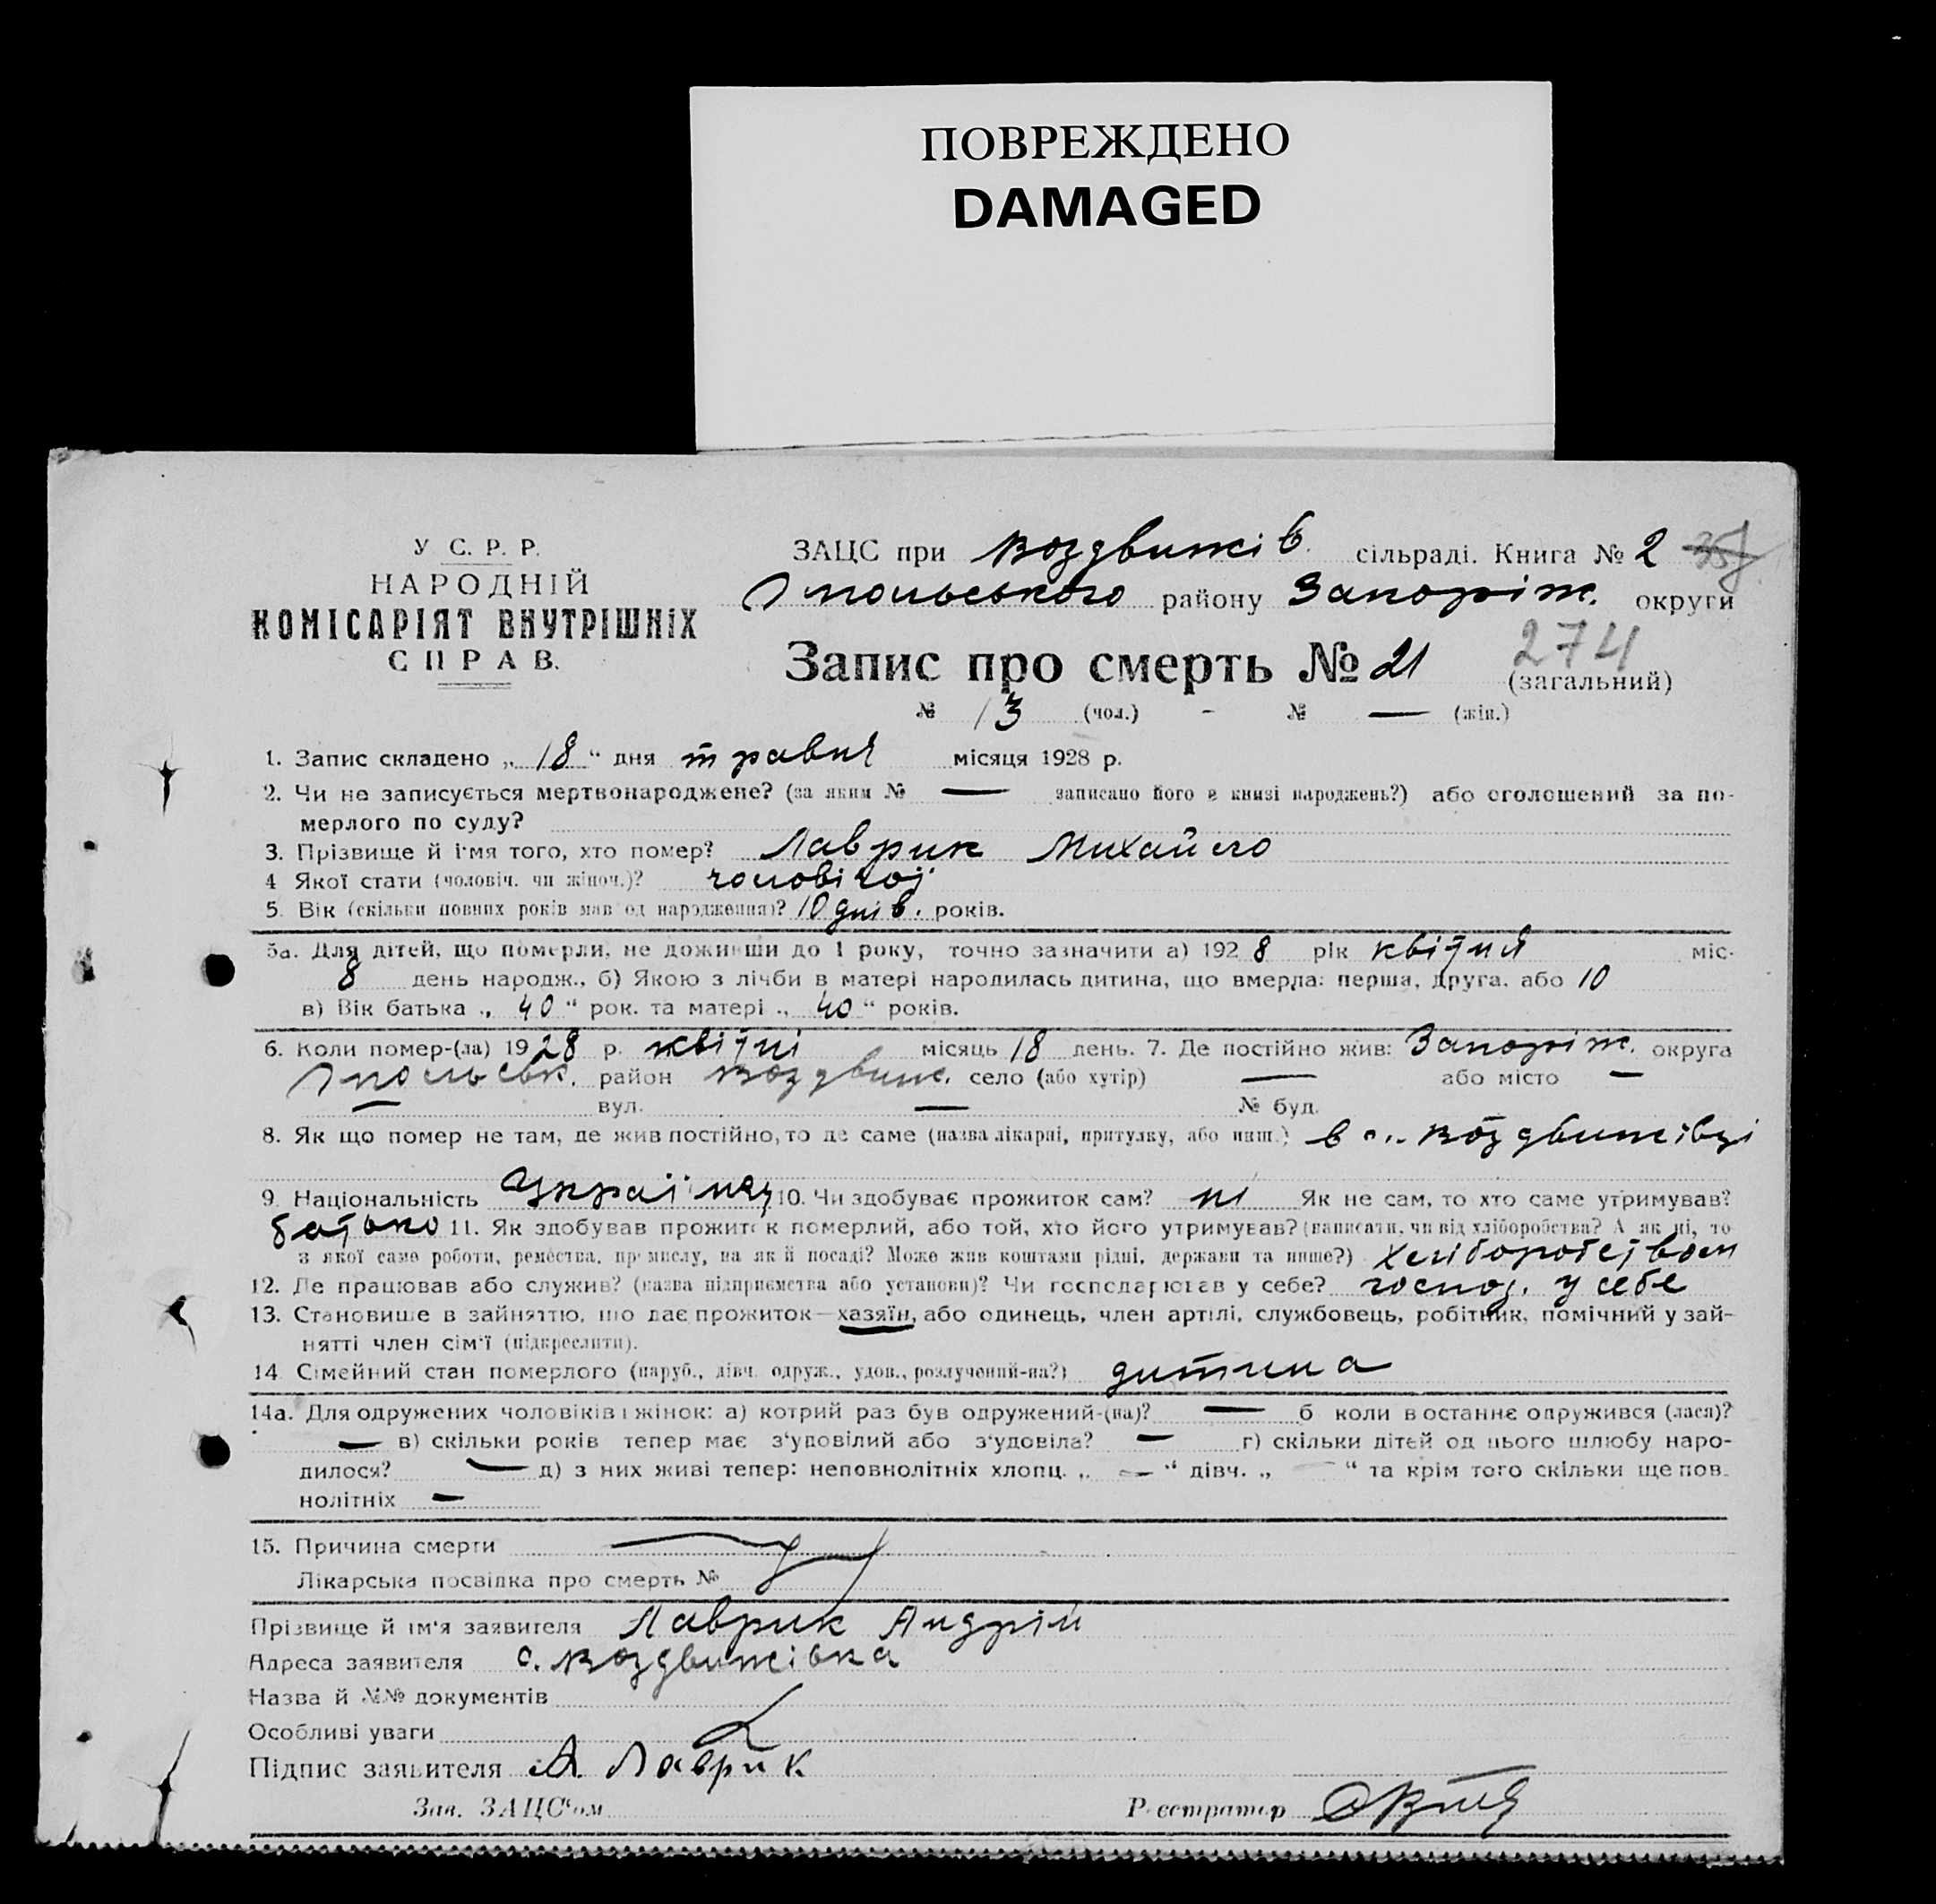 ПОВРЕЖДЕНО
DAMAGED
У С. Р. Р.
НАРОДНІЙ
КОМІСАРІЯТ ВНУТРІШНІХ
СПРАВ.
ЗАЦС при Воздвижів. сільраді. Книга № 2
району Запоріж. округи
Запис про смерть № 21 274
(загальний)
№ 13 (чол.) - № — (жін.)
1. Запис складено „ 18 “ дня травня місяця 1928 р.
2. Чи не записується мертвонароджене? (за яким № — записано його в книзі народжень?) або оголошений за по-
мерлого по суду?
3. Прізвище й ім'я того, хто помер? Лаврик Михайло
4 Якої стати (чоловіч. чи жіноч.)? чоловічої
5. Вік (скільки повних років мав од народження)? 10 днів. років.
5а. Для дітей, що померли, не доживши до 1 року, точно зазначити а) 192 8 рік квітня міс.
8 день народж., б) Якою з лічби в матері народилась дитина, що вмерла: перша, друга, або 10
в) Вік батька „ 40 “ рок. та матері „ 40 “ років.
6. Коли помер-(ла) 1928 р. квітні місяць 18 день. 7. Де постійно жив: Запоріж. округа
район Воздвиж. село (або хутір) — або місто —
— вул. — № буд.
8. Як що помер не там, де жив постійно, то де саме (назва лікарні, притулку, або инш.) в с. Воздвижівці
9. Національність Україн. 10. Чи здобуває прожиток сам? ні Як не сам, то хто саме утримував?
батько 11. Як здобував прожиток померлий, або той, хто його утримував? (написати, чи від хліборобства? А як ні, то
з якої саме роботи, ремества, промислу, на якій посаді? Може жив коштами рідні, держави та инше?) хліборобством
12. Де працював або служив? (назва підприємства або установи)? Чи господарював у себе? господ. у себе
13. Становище в зайняттю, що дає прожиток—хазяїн, або одинець, член артілі, службовець, робітник, помічний у зай-
нятті член сім'ї (підкреслити).
14. Сімейний стан померлого (паруб., дівч. одруж., удов., розлучений-на?) дитина
14а. Для одружених чоловіків і жінок: а) котрий раз був одружений-(на)? — б коли в останнє одружився (лася)?
— в) скільки років тепер має з'удовілий або з'удовіла? — г) скільки дітей од цього шлюбу наро-
дилося? — д) з них живі тепер: неповнолітніх хлопц. „ — “ дівч. „ — “ та крім того скільки ще пов-
нолітніх —
15. Причина смерти
Лікарська посвідка про смерть №
Прізвище й ім'я заявителя Лаврик Андрій
Адреса заявителя с. Воздвижівка
Назва й №№ документів
Особливі уваги
Підпис заявителя А. Лаврик
Зав. ЗАЦС'ом Реєстратор